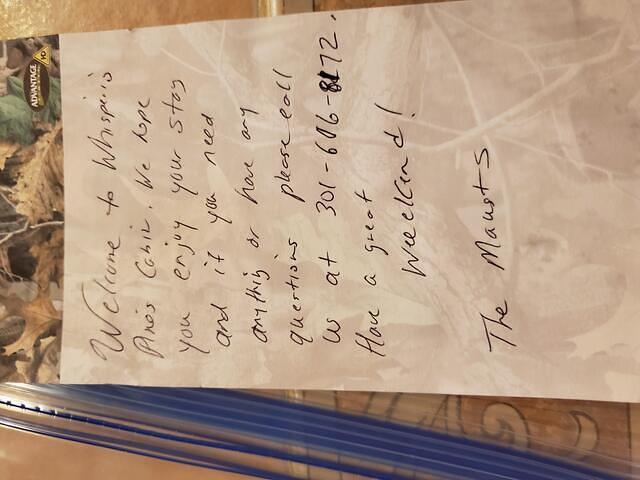 ADVANTAGE
Welcome to Whisperis
Pines Cabin. We hope
you enjoy your stay
and if you need
anythig or have any
questions please call
us at 301-606-8172.
Have a great
Weekend!
The Mausts